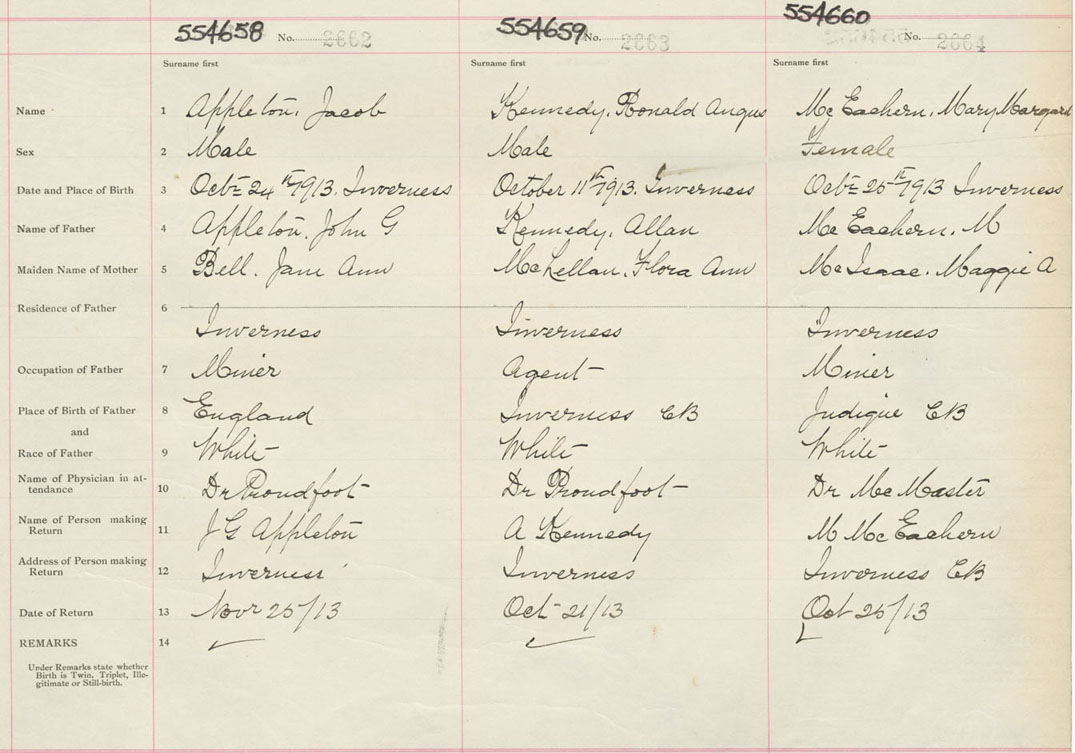 554658 No. 2662 554659 No. 2663 554660 No. 2664
Surname first Surname first Surname first
Name 1 Appleton, Jacob Kennedy, Ronald Angus Mc Eachern, Mary Margaret
Sex 2 Male Male Female
Date and Place of Birth 3 Octr 24th 1913. Inverness October 11th 1913. Inverness Octr 25th 1913 Inverness
Name of Father 4 Appleton, John G Kennedy, Allan Mc Eachern, M
Maiden Name of Mother 5 Bell. Jane Ann McLellan, Flora Ann Mc Isaac. Maggie A
Residence of Father 6
Inverness Inverness Inverness
Occupation of Father 7 Miner Agent Miner
Place of Birth of Father 8 England Inverness CB Judique CB
and
Race of Father 9 White White White
Name of Physician in at-
tendance 10 Dr Proudfoot Dr Proudfoot Dr Mc Master
Name of Person making
Return 11 J G Appleton A Kennedy M Mc Eachern
Address of Person making
Return 12 Inverness Inverness Inverness CB
Date of Return 13 Novr 25/13 Oct 21/13 Oct 25/13
REMARKS 14
Under Remarks state whether
Birth is Twin, Triplet, Ille-
gitimate or Still-birth.